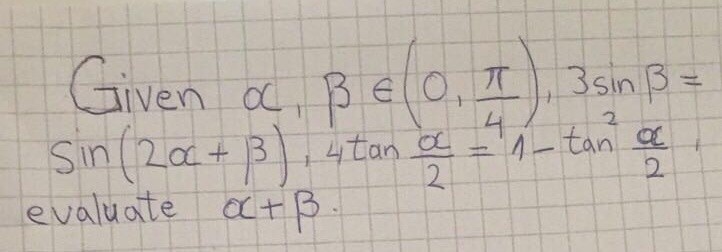 Given α, β ∈ (0, π/4), 3sinβ =
sin(2α + β), 4tan α/2 = 1 - tan² α/2,
evaluate α+β.